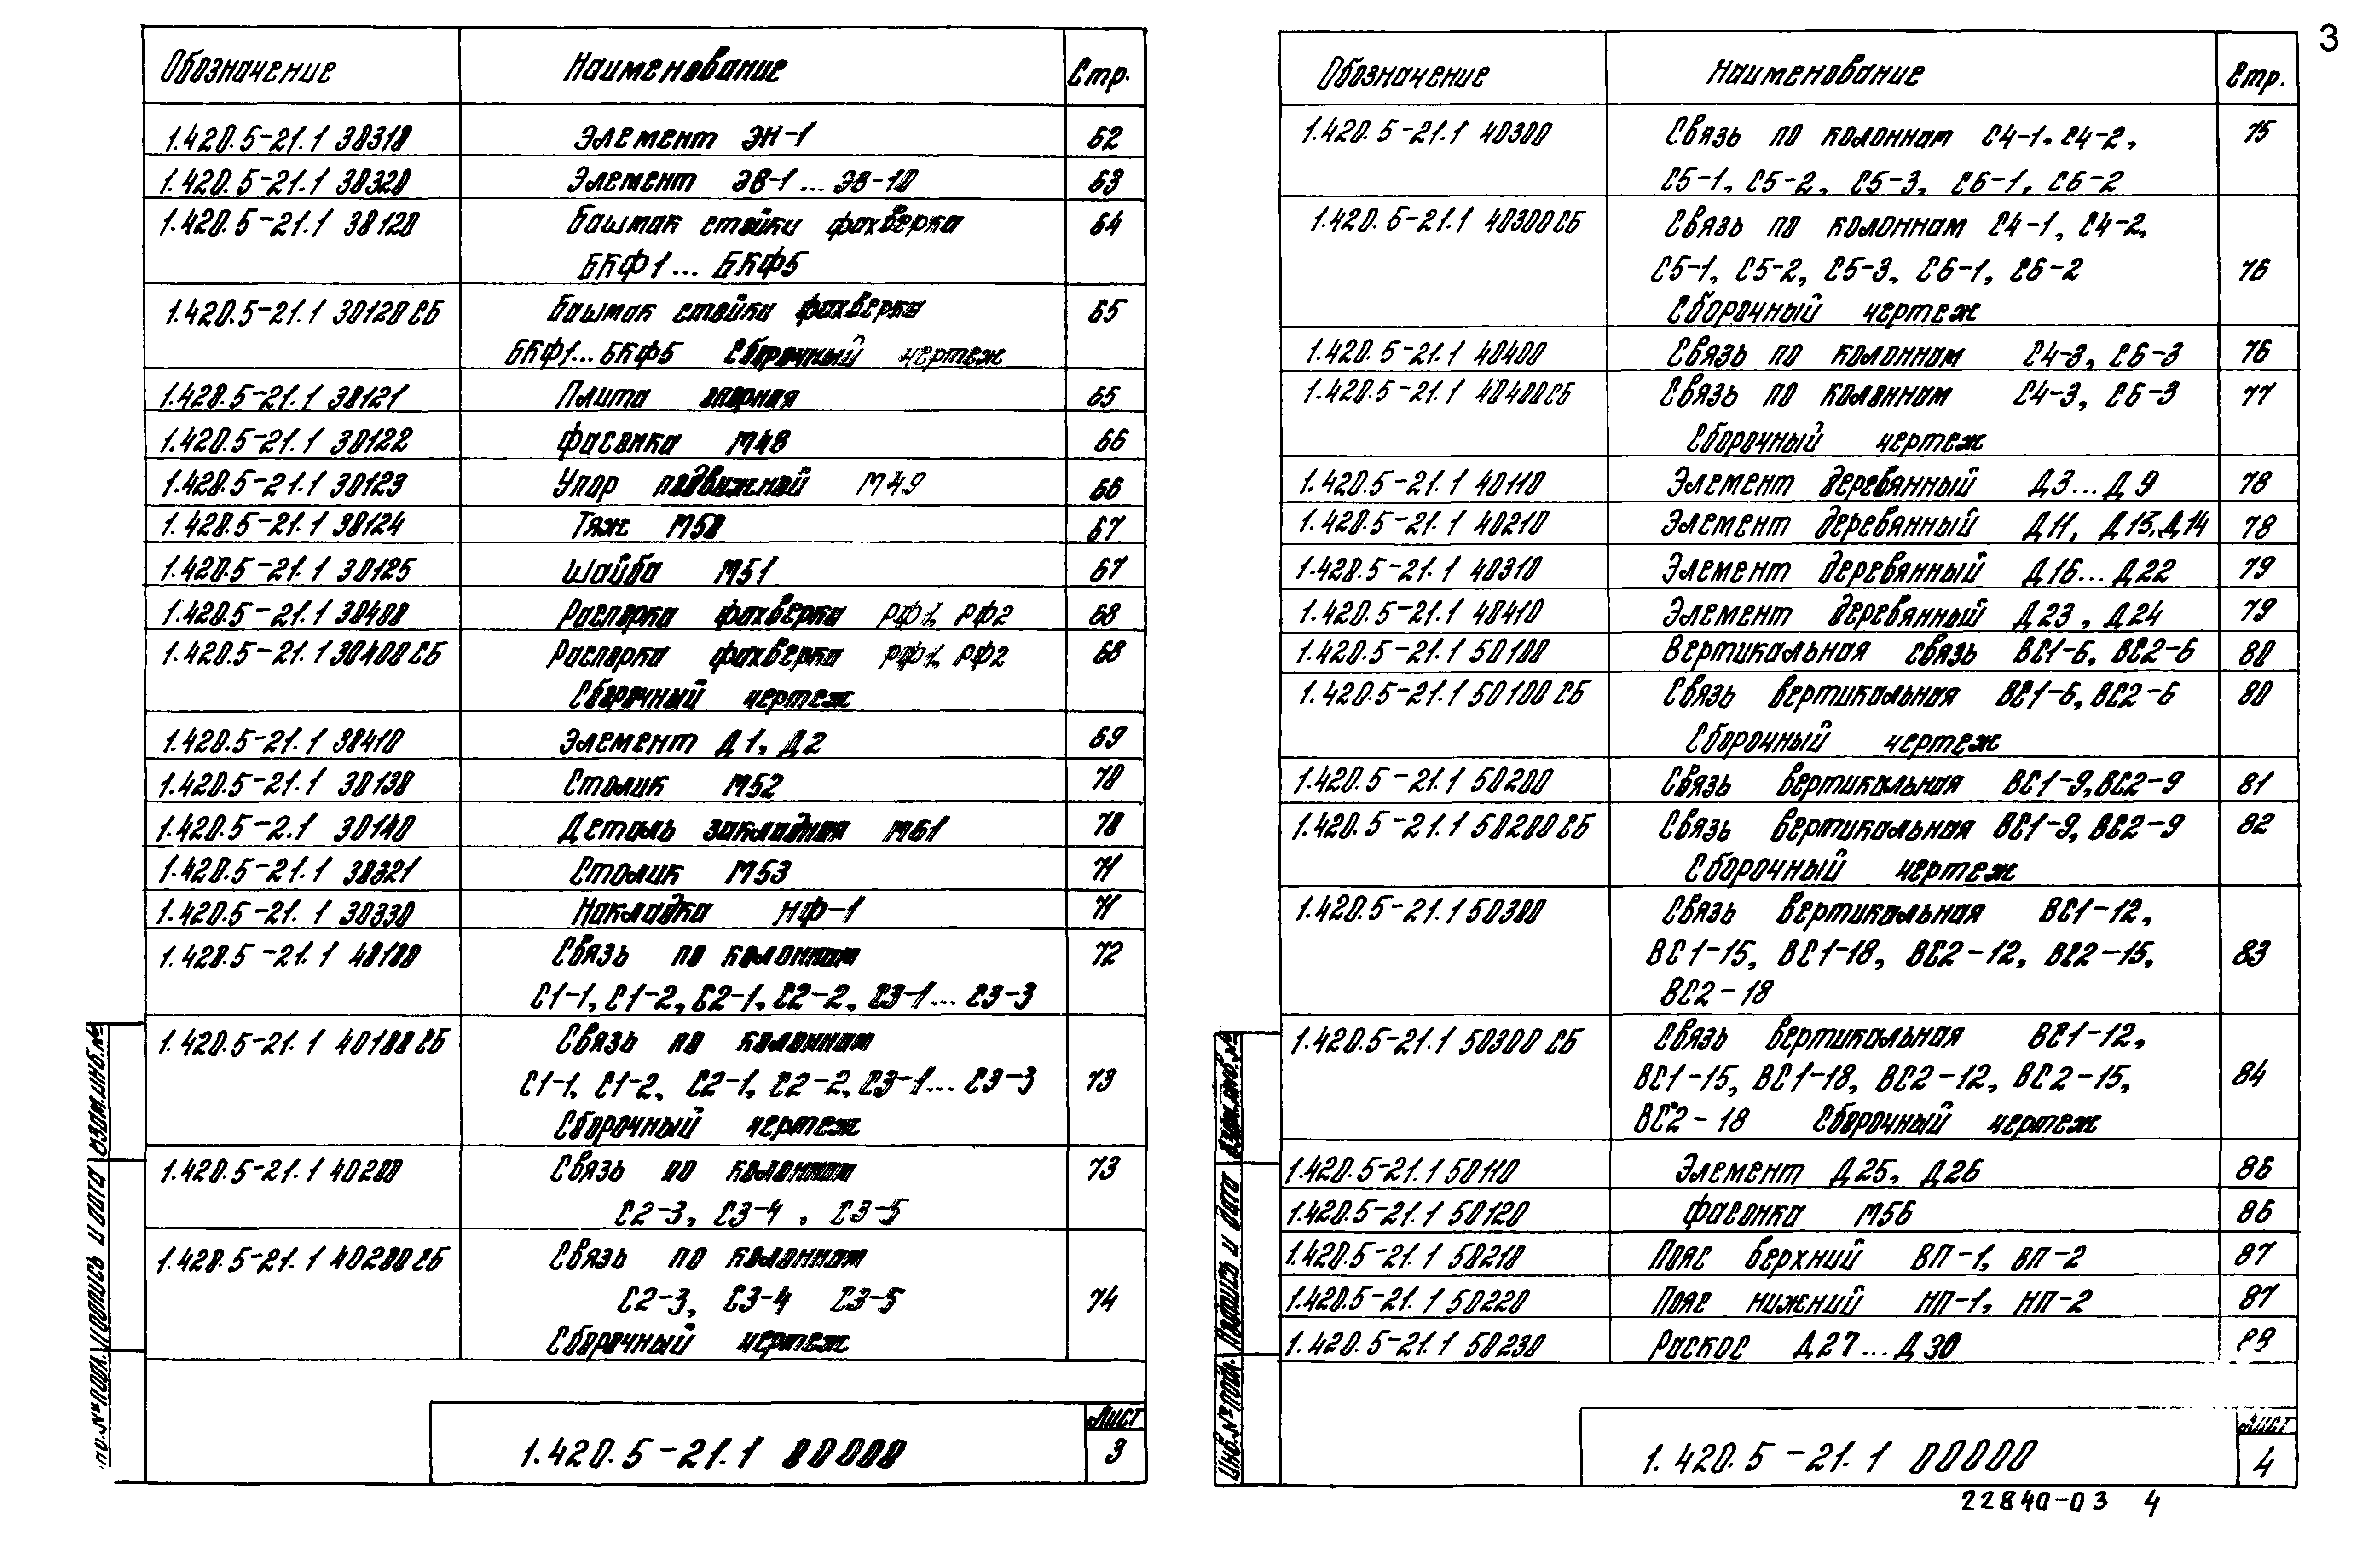 3
Обозначение Наименование Стр.
1.420.5-21.1 30310 Элемент ЭН-1 62
1.420.5-21.1 30320 Элемент ЭВ-1...ЭВ-10 63
1.420.5-21.1 30120 Башмак стойки фахверка 64
БКФ1...БКФ5
1.420.5-21.1 30120СБ Башмак стойки фахверка 65
БКФ1...БКФ5 Сборочный чертеж
1.420.5-21.1 30121 Плита опорная 65
1.420.5-21.1 30122 Фасонка М48 66
1.420.5-21.1 30123 Упор подвижной М49 66
1.420.5-21.1 30124 Тяж М50 67
1.420.5-21.1 30125 Шайба М51 67
1.420.5-21.1 30400 Распорка фахверка РФ1, РФ2 68
1.420.5-21.1 30400СБ Распорка фахверка РФ1, РФ2 68
Сборочный чертеж
1.420.5-21.1 30410 Элемент Д1, Д2 69
1.420.5-21.1 30130 Столик М52 70
1.420.5-2.1 30140 Деталь закладная М61 70
1.420.5-21.1 30321 Столик М53 71
1.420.5-21.1 30330 Накладка НФ-1 71
1.420.5-21.1 40100 Связь по колоннам 72
С1-1, С1-2, С2-1, С2-2, С3-1...С3-3
1.420.5-21.1 40100СБ Связь по колоннам
С1-1, С1-2, С2-1, С2-2, С3-1...С3-3 73
Сборочный чертеж
1.420.5-21.1 40200 Связь по колоннам 73
С2-3, С3-4, С3-5
1.420.5-21.1 40200СБ Связь по колоннам
С2-3, С3-4 С3-5 74
Сборочный чертеж
1.420.5-21.1 00000
Лист
3
подл. Подпись и дата Взам.инв.№
Обозначение Наименование Стр.
1.420.5-21.1 40300 Связь по колоннам С4-1, С4-2, 75
С5-1, С5-2, С5-3, С6-1, С6-2
1.420.5-21.1 40300СБ Связь по колоннам С4-1, С4-2,
С5-1, С5-2, С5-3, С6-1, С6-2 76
Сборочный чертеж
1.420.5-21.1 40400 Связь по колоннам С4-3, С6-3 76
1.420.5-21.1 40400СБ Связь по колоннам С4-3, С6-3 77
Сборочный чертеж
1.420.5-21.1 40110 Элемент деревянный Д3...Д9 78
1.420.5-21.1 40210 Элемент деревянный Д11, Д13, Д14 78
1.420.5-21.1 40310 Элемент деревянный Д16...Д22 79
1.420.5-21.1 40410 Элемент деревянный Д23, Д24 79
1.420.5-21.1 50100 Вертикальная связь ВС1-6, ВС2-6 80
1.420.5-21.1 50100СБ Связь вертикальная ВС1-6, ВС2-6 80
Сборочный чертеж
1.420.5-21.1 50200 Связь вертикальная ВС1-9, ВС2-9 81
1.420.5-21.1 50200СБ Связь вертикальная ВС1-9, ВС2-9 82
Сборочный чертеж
1.420.5-21.1 50300 Связь вертикальная ВС1-12,
ВС1-15, ВС1-18, ВС2-12, ВС2-15, 83
ВС2-18
1.420.5-21.1 50300СБ Связь вертикальная ВС1-12,
ВС1-15, ВС1-18, ВС2-12, ВС2-15, 84
ВС2-18 Сборочный чертеж
1.420.5-21.1 50110 Элемент Д25, Д26 86
1.420.5-21.1 50120 Фасонка М56 86
1.420.5-21.1 50210 Пояс верхний ВП-1, ВП-2 87
1.420.5-21.1 50220 Пояс нижний НП-1, НП-2 87
1.420.5-21.1 50230 Раскос Д27...Д30
1.420.5-21.1 00000
Лист
4
Инв.№подл. Подпись и дата Взам.инв.№
22840-03 4